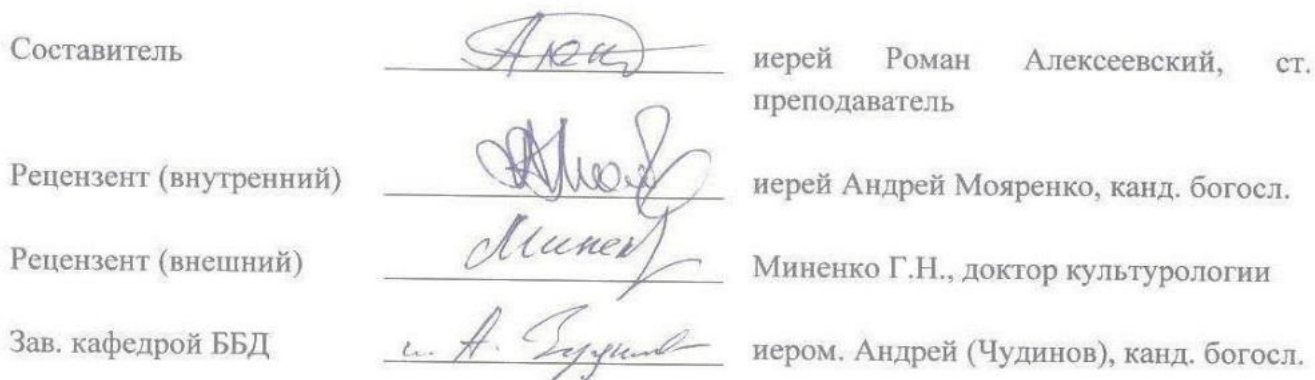 Составитель иерей Роман Алексеевский, ст.
преподаватель
Рецензент (внутренний) иерей Андрей Мояренко, канд. богосл.
Рецензент (внешний) Миненко Г.Н., доктор культурологии
Зав. кафедрой ББД иером. Андрей (Чудинов), канд. богосл.